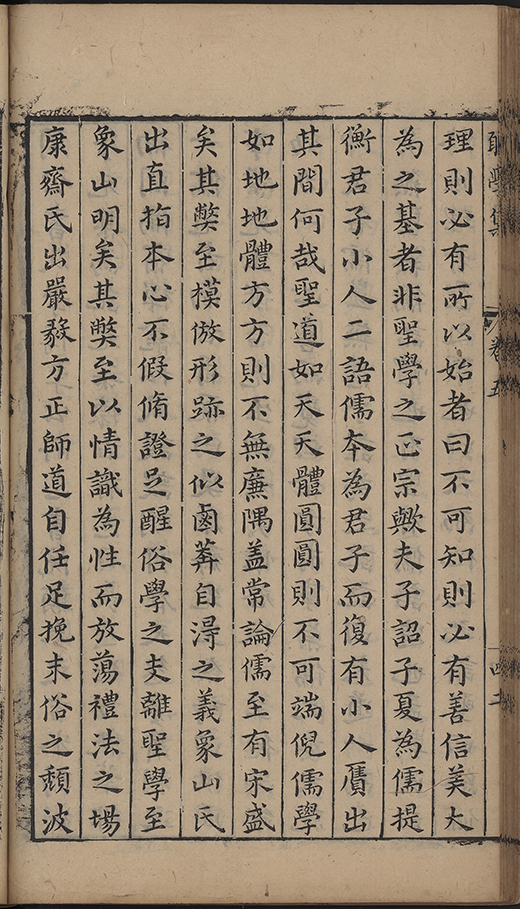 學集 卷五
理則必有所以始者曰不可知則必有善信美大
為之基者非聖學之正宗歟夫子詔子夏為儒提
衡君子小人二語儒夲為君子而復有小人贋出
其間何哉聖道如天天體圓圓則不可端倪儒學
如地地體方方則不無廉隅盖常論儒至有宋盛
矣其獘至模倣形跡之似鹵莾自淂之義象山氏
出直指本心不假脩證足醒俗學之支離聖學至
象山明矣其獘至以情識為性而放蕩禮法之場
康齋氏出嚴毅方正師道自任足挽末俗之頽波